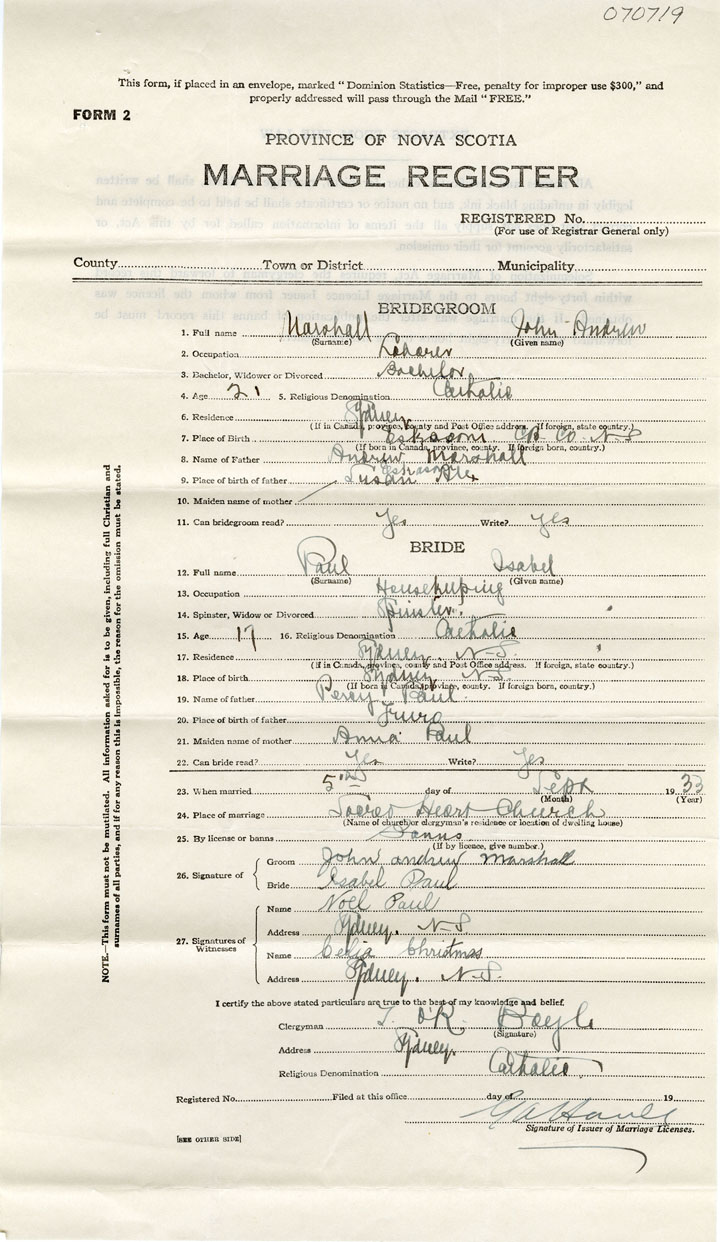 070719
This form, if placed in an envelope, marked "Dominion Statistics—Free, penalty for improper use $300," and
properly addressed will pass through the Mail "FREE."
FORM 2
PROVINCE OF NOVA SCOTIA
MARRIAGE REGISTER
REGISTERED No.
(For use of Registrar General only)
County Town or District Municipality
BRIDEGROOM
1. Full name Marshall John Andrew
(Surname) (Given name)
2. Occupation Laborer
3. Bachelor, Widower or Divorced Bachelor
4. Age 21 5. Religious Denomination Catholic
6. Residence Sydney
(If in Canada, province, county and Post Office address. If foreign, state country.)
7. Place of Birth Eskasoni CB Co. N-S
(If born in Canada, province, county. If foreign born, country.)
8. Name of Father Andrew Marshall
9. Place of birth of father Eskasoni
Susan
10. Maiden name of mother
11. Can bridegroom read? Yes Write? Yes
BRIDE
12. Full name Paul Isabel
(Surname) (Given name)
13. Occupation Housekeeping
14. Spinster, Widow or Divorced Spinster.
15. Age 17 16. Religious Denomination Catholic
17. Residence Sydney N-S.
(If in Canada, province, county and Post Office address. If foreign, state country.)
18. Place of birth Sydney N-S.
(If born in Canada, province, county. If foreign born, country.)
19. Name of father Percy Paul
20. Place of birth of father Truro
21. Maiden name of mother Anna Paul
22. Can bride read? Yes Write? Yes
23. When married 5 day of Sept 1933
(Month) (Year)
24. Place of marriage Sacred Heart Church
(Name of church or clergyman's residence or location of dwelling house)
25. By license or banns Banns
(If by licence, give number.)
26. Signature of Groom John andrew Marshall
Bride Isabel Paul
27. Signatures of Witnesses
Name Noel Paul
Address Sydney. N-S
Name Celia Christmas
Address Sydney. N.S.
I certify the above stated particulars are true to the best of my knowledge and belief.
Clergyman O'R. Boyle
(Signature)
Address Sydney.
Religious Denomination Catholic
Registered No. Filed at this office day of 19
Signature of Issuer of Marriage Licenses.
[SEE OTHER SIDE]
NOTE.—This form must not be mutilated. All information asked for is to be given, including full Christian and
surnames of all parties, and if for any reason this is impossible, the reason for the omission must be stated.